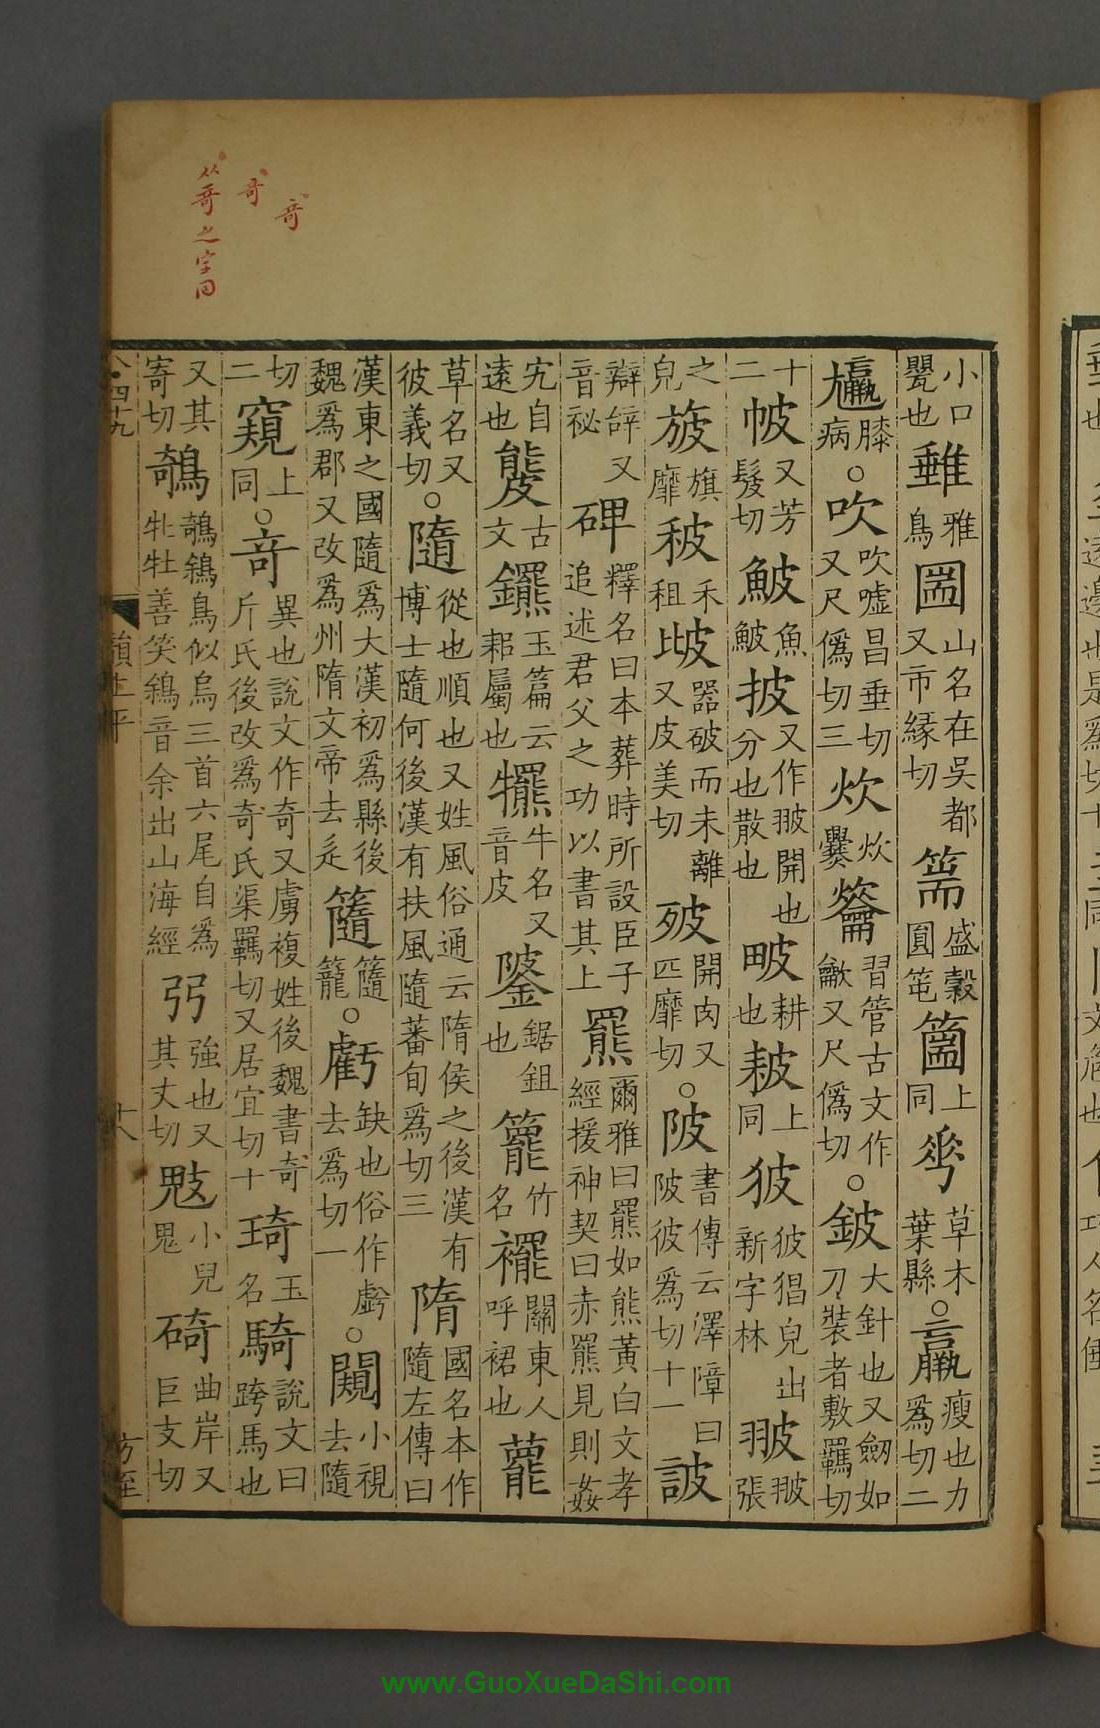 竒
竒
从竒之字同
小口甖也䳠雅鳥圌山名在吳都又市緣切篅盛穀圓笔𥫱上同𠌶草木葉縣○羸瘦也力爲切二
𡰠膝病○吹吹嘘昌垂切又尺僞切三炊炊爨䶴習管古文作龡又尺僞切○鈹大針也又劒如刀裝者敷羈切
十二帔又芳髲切鮍魚鮍披又作翍開也分也散也畈耕也耚上同狓狓猖皃出新字林翍翍張
之皃旇旗靡秛禾租㱟器破而未離又皮美切㱟開肉又匹靡切○陂書傳云澤障曰陂彼爲切十一詖
辯辝又音祕碑釋名曰本葬時所設臣子追述君父之功以書其上羆爾雅曰羆如熊黃白文孝經援神契曰赤羆見則姦
宄自遠也𤠙古文䥯玉篇云耜屬也犤牛名又音皮鐾鋸鉏也籠竹名襬關東人呼裙也蘢
草名又彼義切○隨從也順也又姓風俗通云隋侯之後漢有博士隨何後漢有扶風隨蕃旬爲切三隋國名本作隨左傳曰
漢東之國隨爲大漢初爲縣後魏爲郡又改爲州隋文帝去辵䉌䉌籠○虧缺也俗作𧇾去爲切一○闚小視去隨
切二窺上同○奇異也說文作奇又虜複姓後魏書奇斤氏後改爲奇氏渠羈切又居宜切十琦玉名騎說文曰跨馬也
又其寄切鵸鵸鵌鳥似烏三首六尾自爲牝牡善笑鵌音余出山海經弜強也又其丈切鬾小兒鬼碕曲岸又巨支切
八四九
韻上平
十八
方至
www.GuoXueDaShi.com